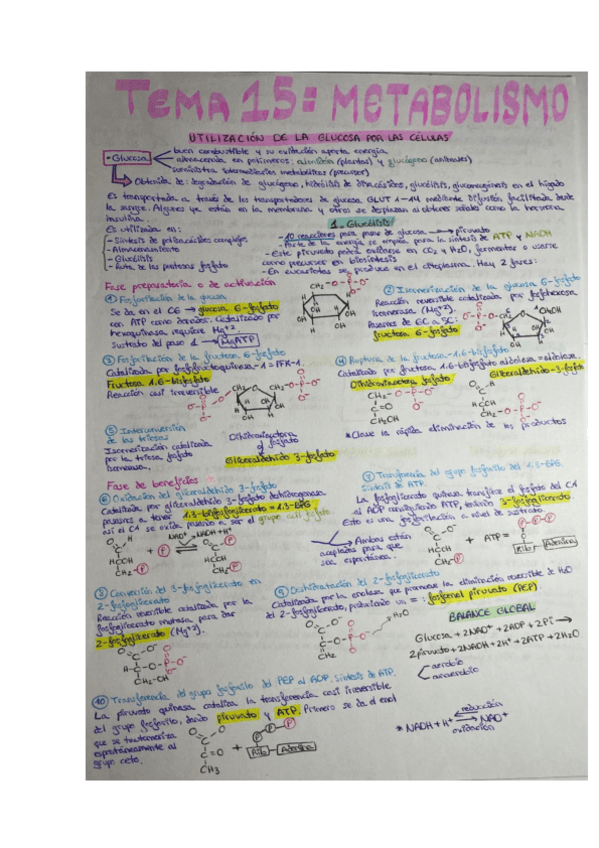 TEMA 15: METABOLISMO
UTILIZACIÓN DE LA GLUCOSA POR LAS CÉLULAS
- Glucosa
buen combustible y su oxidación aporta energía
almacenada en polímeros: almidón (plantas) y glucógeno (animales)
suministra intermediarios metabólicos (precursor)
Obtenida de: degradación de glucógeno, hidrólisis de disacáridos, gluconeogénesis en el hígado
Es transportada a través de los transportadores de glucosa GLUT 1-14 mediante difusión facilitada desde
la sangre. Algunos ya están en la membrana y otros se desplazan al obtener señales como la hormona
insulina.
Es utilizada en:
- Síntesis de polisacáridos complejos
- Almacenamiento
- Glucólisis
- Ruta de las pentosas fosfato
1. Glucólisis
- 10 reacciones para pasar de glucosa → piruvato
- Parte de la energía se emplea para la síntesis de ATP y NADH
- Este piruvato podrá oxidarse en CO2 y H2O, fermentar o usarse
como precursor en biosíntesis
- En eucariotas se produce en el citoplasma. Hay 2 fases:
Fase preparatoria o de activación
① Fosforilación de la glucosa
Se da en el C6 → glucosa 6-fosfato
con ATP como donador. Catalizado por
hexoquinasa requiere Mg+2
Sustrato del paso 1 → MgATP
② Isomerización de la glucosa 6-fosfato
Reacción reversible catalizada por fosfohexosa
isomerasa (Mg+2).
Pasamos de 6C a 5C:
fructosa 6-fosfato
③ Fosforilación de la fructosa 6-fosfato
Catalizada por fosfofructoquinasa-1 = PFK-1.
Fructosa 1,6-bisfosfato
Reacción casi irreversible
④ Ruptura de la fructosa-1,6-bisfosfato
Catalizada por fructosa 1,6-bisfosfato aldolasa = aldolasa.
Dihidroxiacetona fosfato
Gliceraldehído 3-fosfato
* Clave la rápida eliminación de los productos
⑤ Interconversión
de las triosas
Isomerización catalizada
por la triosa fosfato
isomerasa.
Dihidroxiacetona
fosfato
Gliceraldehído 3-fosfato
Fase de beneficios
⑥ Oxidación del gliceraldehído 3-fosfato
Catalizada por gliceraldehído 3-fosfato deshidrogenasa
pasamos a tener 1,3-bifosfoglicerato = 1,3-BPG
así el C4 se oxida pasando a ser el grupo acil fosfato
NAD+ NADH + H+
Ambas están
acopladas para que
sea espontánea.
⑦ Transferencia del grupo fosforilo del 1,3-BPG.
Síntesis de ATP.
La fosfoglicerato quinasa transfiere el fosfato del C1
al ADP consiguiendo ATP, teniendo 3-fosfoglicerato
Esto es una fosforilación a nivel de sustrato.
ATP =
Ribo
Adenina
⑧ Conversión del 3-fosfoglicerato en
2-fosfoglicerato
Reacción reversible catalizada por la
fosfoglicerato mutasa para dar
2-fosfoglicerato (Mg+2).
⑨ Deshidratación del 2-fosfoglicerato
Catalizada por la enolasa que promueve la eliminación reversible de H2O
del 2-fosfoglicerato, produciendo un = : fosfoenol piruvato (PEP).
H2O
BALANCE GLOBAL
Glucosa + 2NAD+ + 2ADP + 2Pi →
2piruvato + 2NADH + 2H+ + 2ATP + 2H2O
aerobio
anaerobio
⑩ Transferencia del grupo fosforilo del PEP al ADP. Síntesis de ATP.
La piruvato quinasa cataliza la transferencia casi irreversible
del grupo fosforilo, dando piruvato y ATP. Primero se da el enol
que se tautomeriza
espontáneamente al
grupo ceto.
Ribo
Adenina
* NADH + H+ NAD+
reducción
oxidación